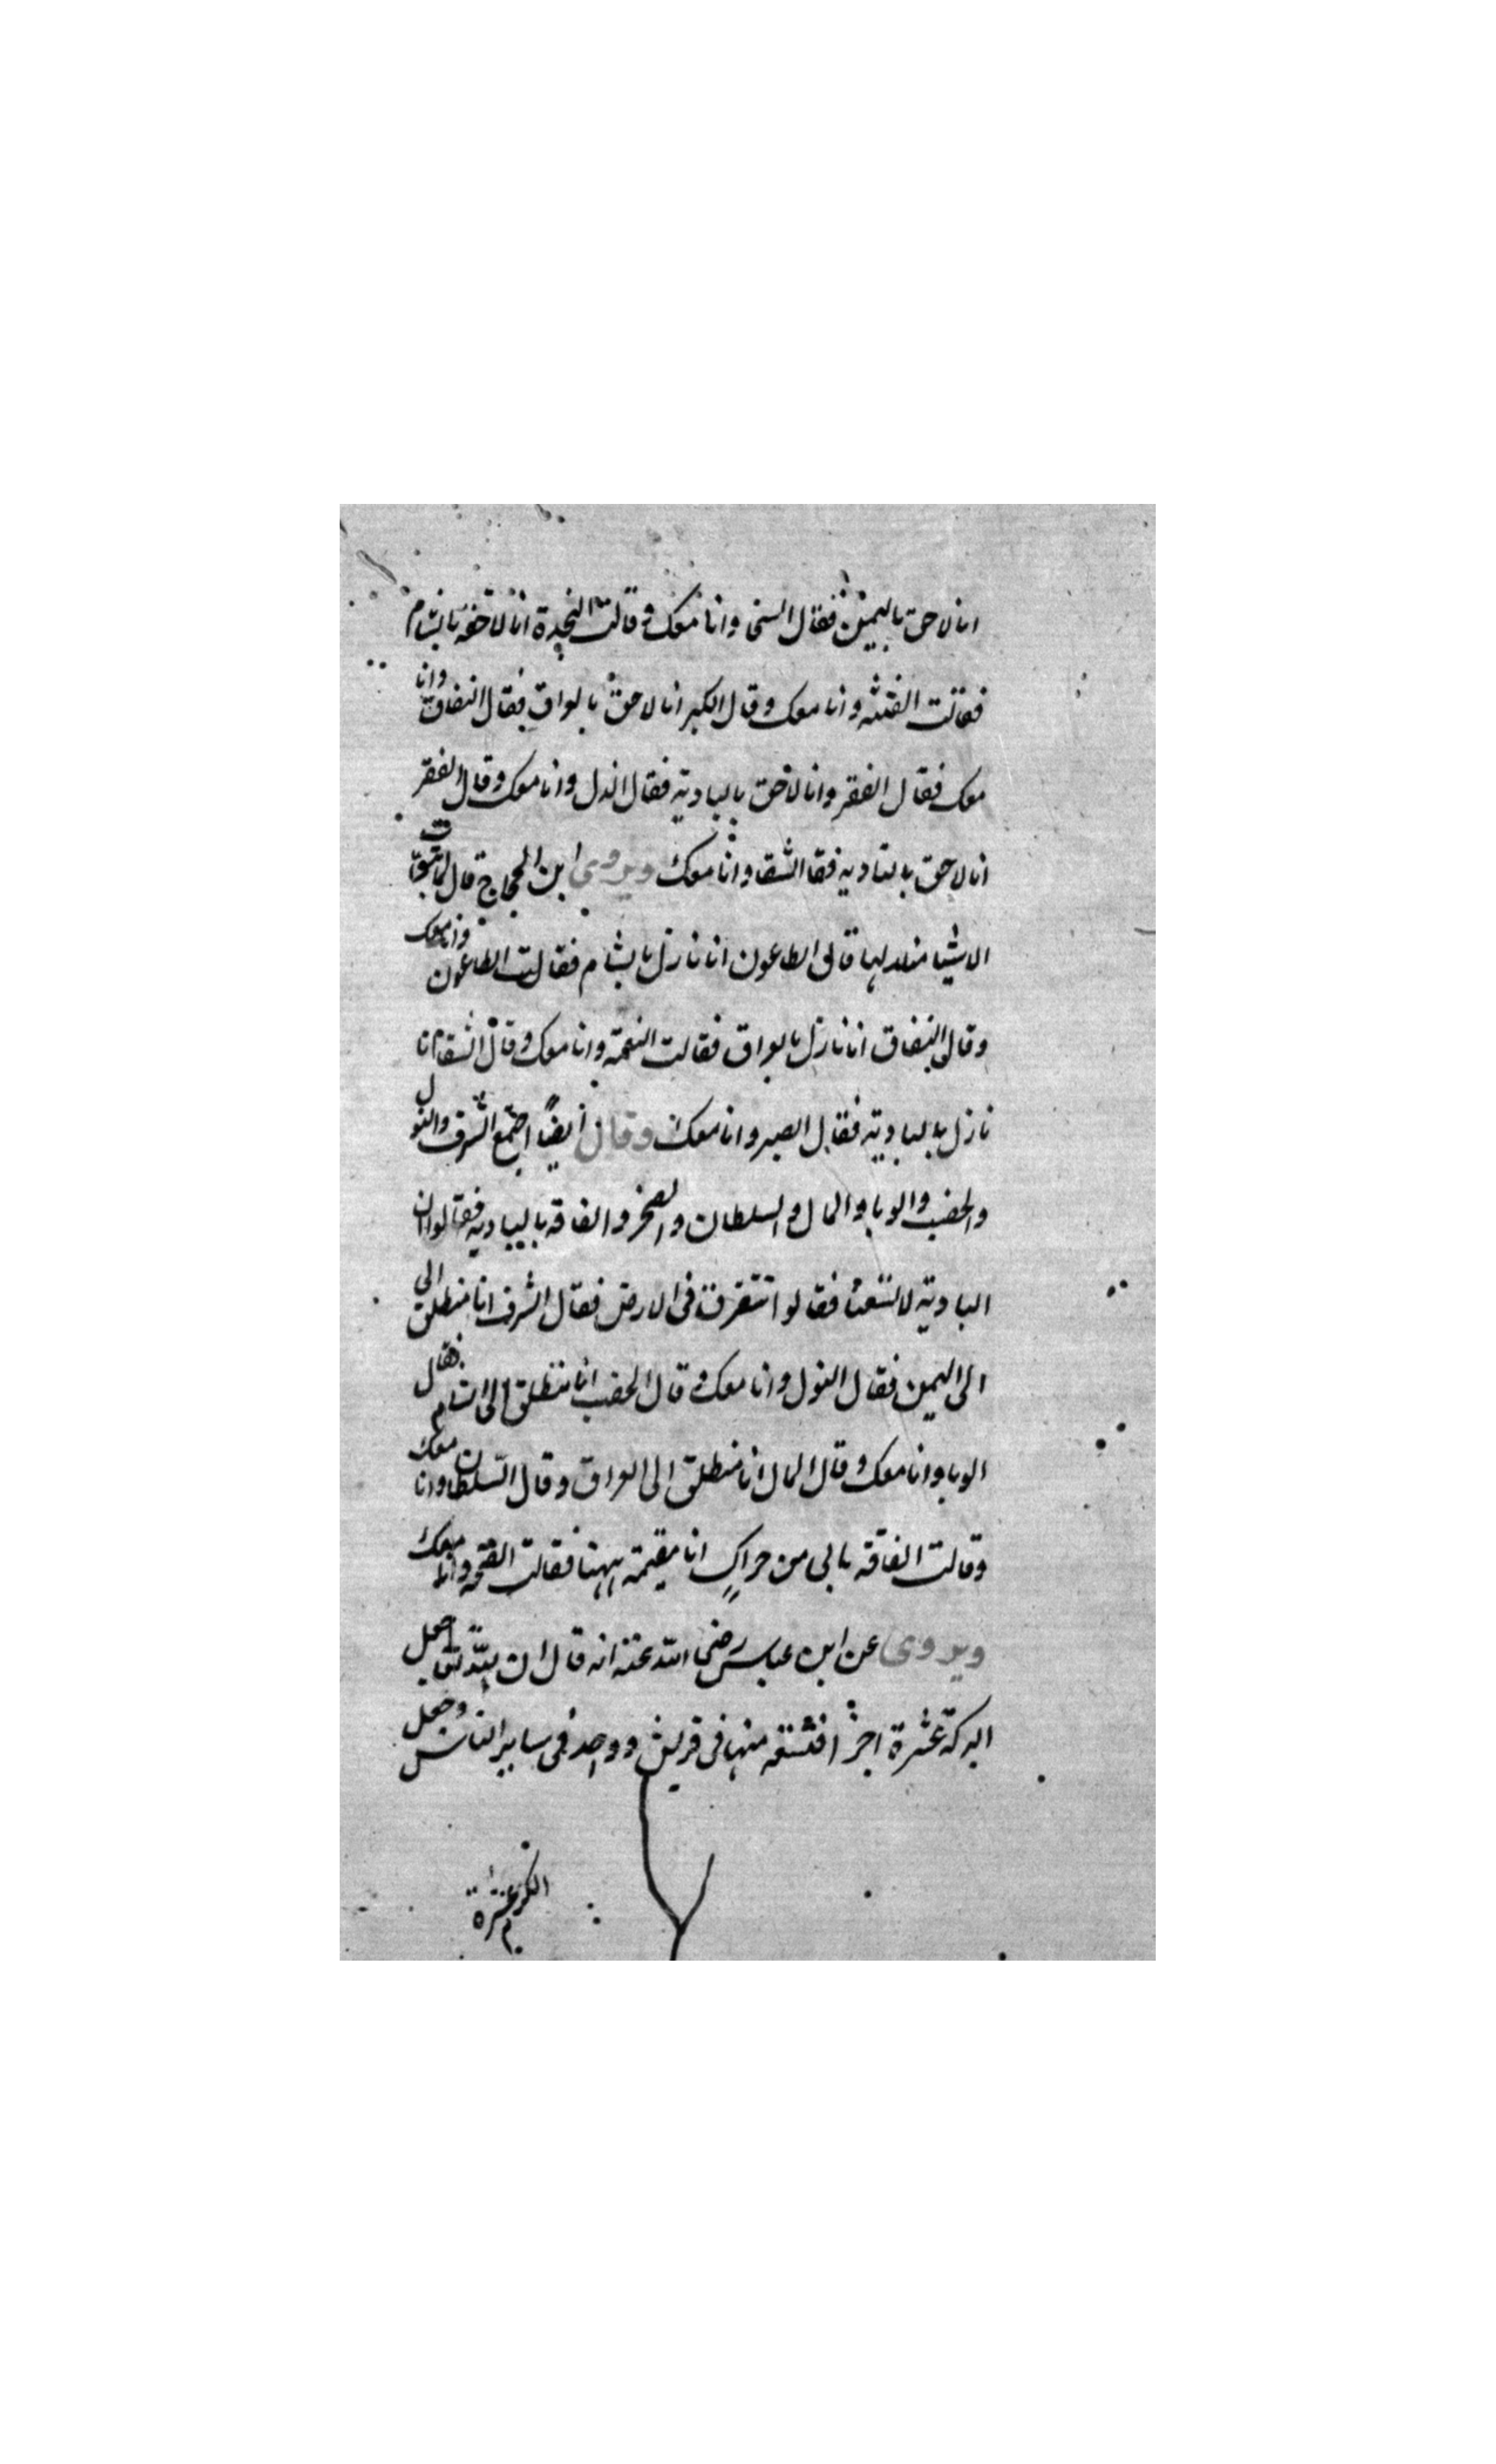 انا لاحق باليمين فقال السخى وانا معك وقالت النجدة انا لاحقه بالشام
فقالت الفتنه وانا معك وقال الكبر انا لاحق بالعراق فقال النفاق وانا
معك فقال الفقر وانا لاحق بالبادية فقال الذل وانا معك وقال الفقر
انا لاحق بالباديه فقا الشقا وانا معك ويروى ابن الحجاج قال لما تبوات
الاشيا منازلها قال الطاعون انا نازل بالشام فقالت الطاعون وانا معك
وقال النفاق انا نازل بالعراق فقالت النعمة وانا معك وقال الشقا انا
نازل بالبادية فقال الصبر وانا معك وقال ايضًا اجتمع الشرف والنول
والخصب والوبا والمال والسلطان والصخر والفاقه بالبيادية فقالوا ان
البادية لا تسعنا فقالوا نتفرق فى الارض فقال الشرف انا منطلق الى
الى اليمين فقال النول وانا معك وقال الخصب انا منطلق الى الشام فقال
الوبا وانا معك وقال المال انا منطلق الى العراق وقال السلطان وانا معك
وقالت الفاقه مالى من حراك انا مقيمة ههنا فقالت وانا معك
ويروى عن ابن عباس رضى الله عنه انه قال ان الله تعا جعل
البركة عشرة اجزا فتسعه منها فى قريش وواحد فى ساير الناس وجعل
الكرم عشرة